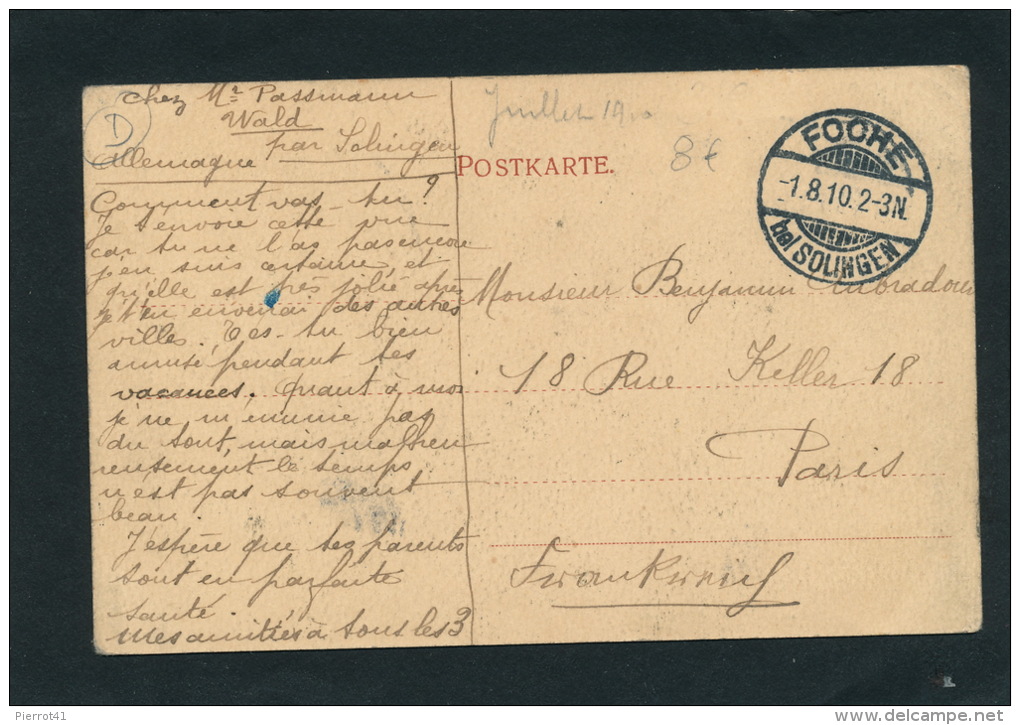 chez Mr Passmann
Wald
par Solingen
Allemagne
Comment vas-tu ?
Je t'envoie cette vue
car tu ne l'as pas encore
j'en suis certaine et
qu'elle est très jolie après
je t'en enverrai des autres
villes. T'es-tu bien
amusé pendant tes
vacances. Quant à moi
je ne m'ennuie pas
du tout, mais malheu
reusement le temps
n'est pas souvent
beau.
J'espère que tes parents
sont en parfaite
santé.
Mes amitiés à tous les 3
D
Juillet 19
8€
POSTKARTE.
FOCHE
-1.8.10.2-3N.
bei SOLINGEN
Monsieur Benjamin
18 Rue Keller 18
Paris
Frankreich
Pierrot41
delcampe.net